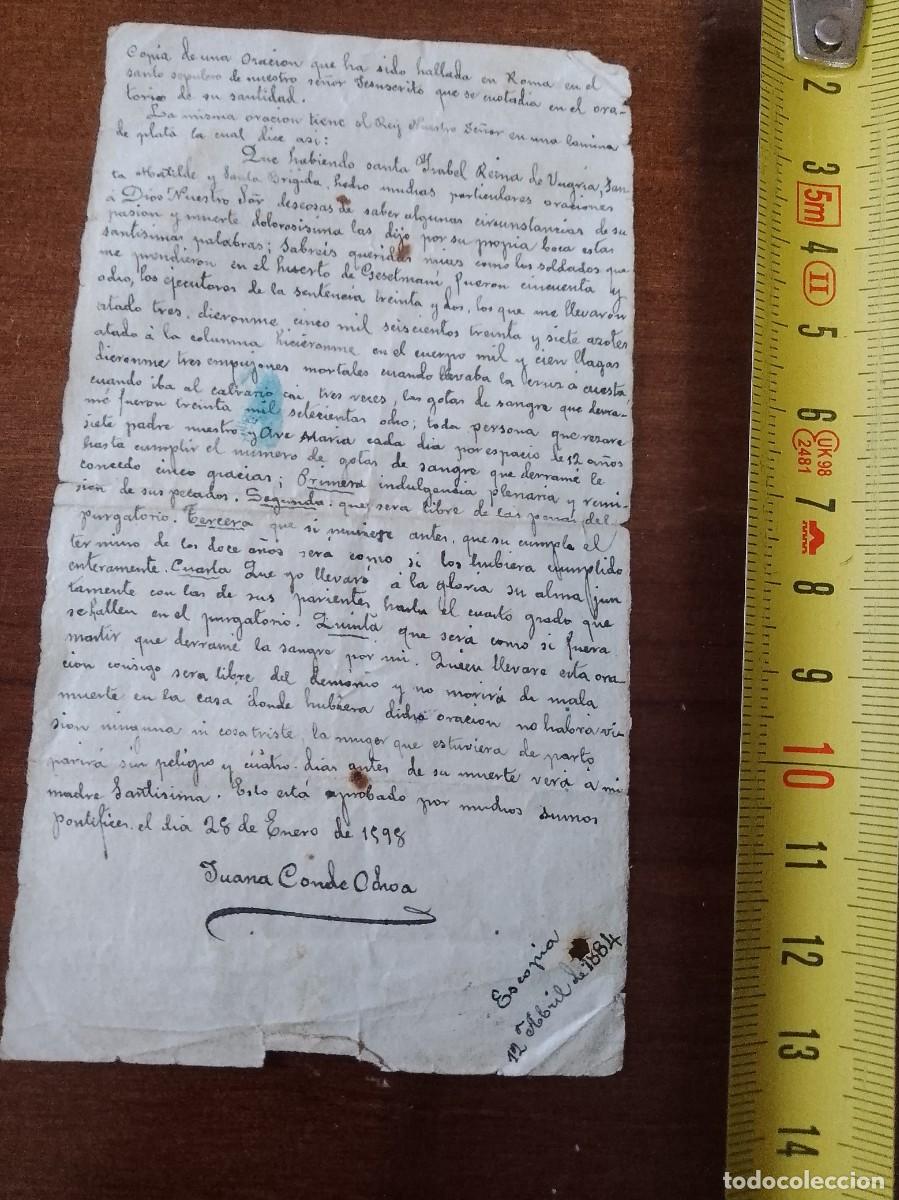 Copia de una Oracion que ha sido hallada en Roma en el
santo sepulcro de nuestro señor Jesuscrito que se custadia en el ora-
torio de su santidad.
La misma oracion tiene el Rey Nuestro Señor en una lamina
de plata la cual dice asi:
Que habiendo santa Ysabel Reina de Ungria, San-
ta Matilde y Santa Brigida, hecho muchas particulares oraciones
á Dios Nuestro Sör deseosas de saber algunas circunstancias de su
pasion y muerte dolorosisima las dijo por su propia boca estas
santisimas palabras; Sabreis queridas mias como los soldados que
me prendieron en el huerto de Getsemaní fueron cincuenta y
ocho, los ejecutores de la sentencia treinta y dos, los que me llevaron
atado tres, dieronme cinco mil seiscientos treinta y siete azotes
atado á la columna hicieronme en el cuerpo mil y cien llagas
dieronme tres empujones mortales cuando llevaba la cruz a cuesta
cuando iba al calvario cai tres veces, las gotas de sangre que derra-
mé fueron treinta mil setecientas ocho; toda persona que rezare
siete padre nuestro y Ave Maria cada dia por espacio de 12 años
hasta cumplir el numero de gotas de sangre que derramé le
concedo cinco gracias; Primera indulgencia plenaria y remi
sion de sus pecados. Segunda. que sera libre de las penas del
purgatorio. Tercera que si muriese antes, que su cumpla el
termino de los doce años sera como si los hubiera cumplido
enteramente. Cuarta Que yo llevare á la gloria su alma jun
tamente con las de sus parientes hasta el cuarto grado que
se hallen en el purgatorio. Quinta que será como si fuera
martir que derramé la sangre por mi. Quien llevare esta ora
cion consigo sera libre del demonio y no morirá de mala
muerte en la casa donde hubiera dicha oracion no habra vi-
sion ninguna ni cosa triste, la muger que estuviera de parto
parirá sin peligro y cuatro dias antes de su muerte verá á mi
madre Santisima. Esto está aprobado por muchos sumos
pontifices, el dia 28 de Enero de 1598
Juana Conde Ochoa
Es copia
12 Abril de 1884
2
3
5m
4
II
5
6
UK98
2481
7
8
9
10
11
12
13
14
todocoleccion